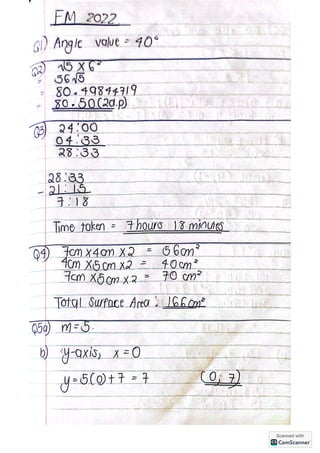 FM 2022
Q1) Angle value = 40°
Q2) √5 x 6²
= 36√5
= 80.49844719
= 80.50 (2d.p)
Q3) 24:00
04:33
28:33
28:33
- 21:15
7:18
Time taken = 7 hours 18 minutes
Q4) 7cm x 4cm x 2 = 56cm²
4cm x 5cm x 2 = 40cm²
7cm x 5cm x 2 = 70 cm²
Total Surface Area : 166cm²
Q5a) m=5.
b) y-axis, x=0
y=5(0)+7=7 (0; 7)
Scanned with
CS CamScanner